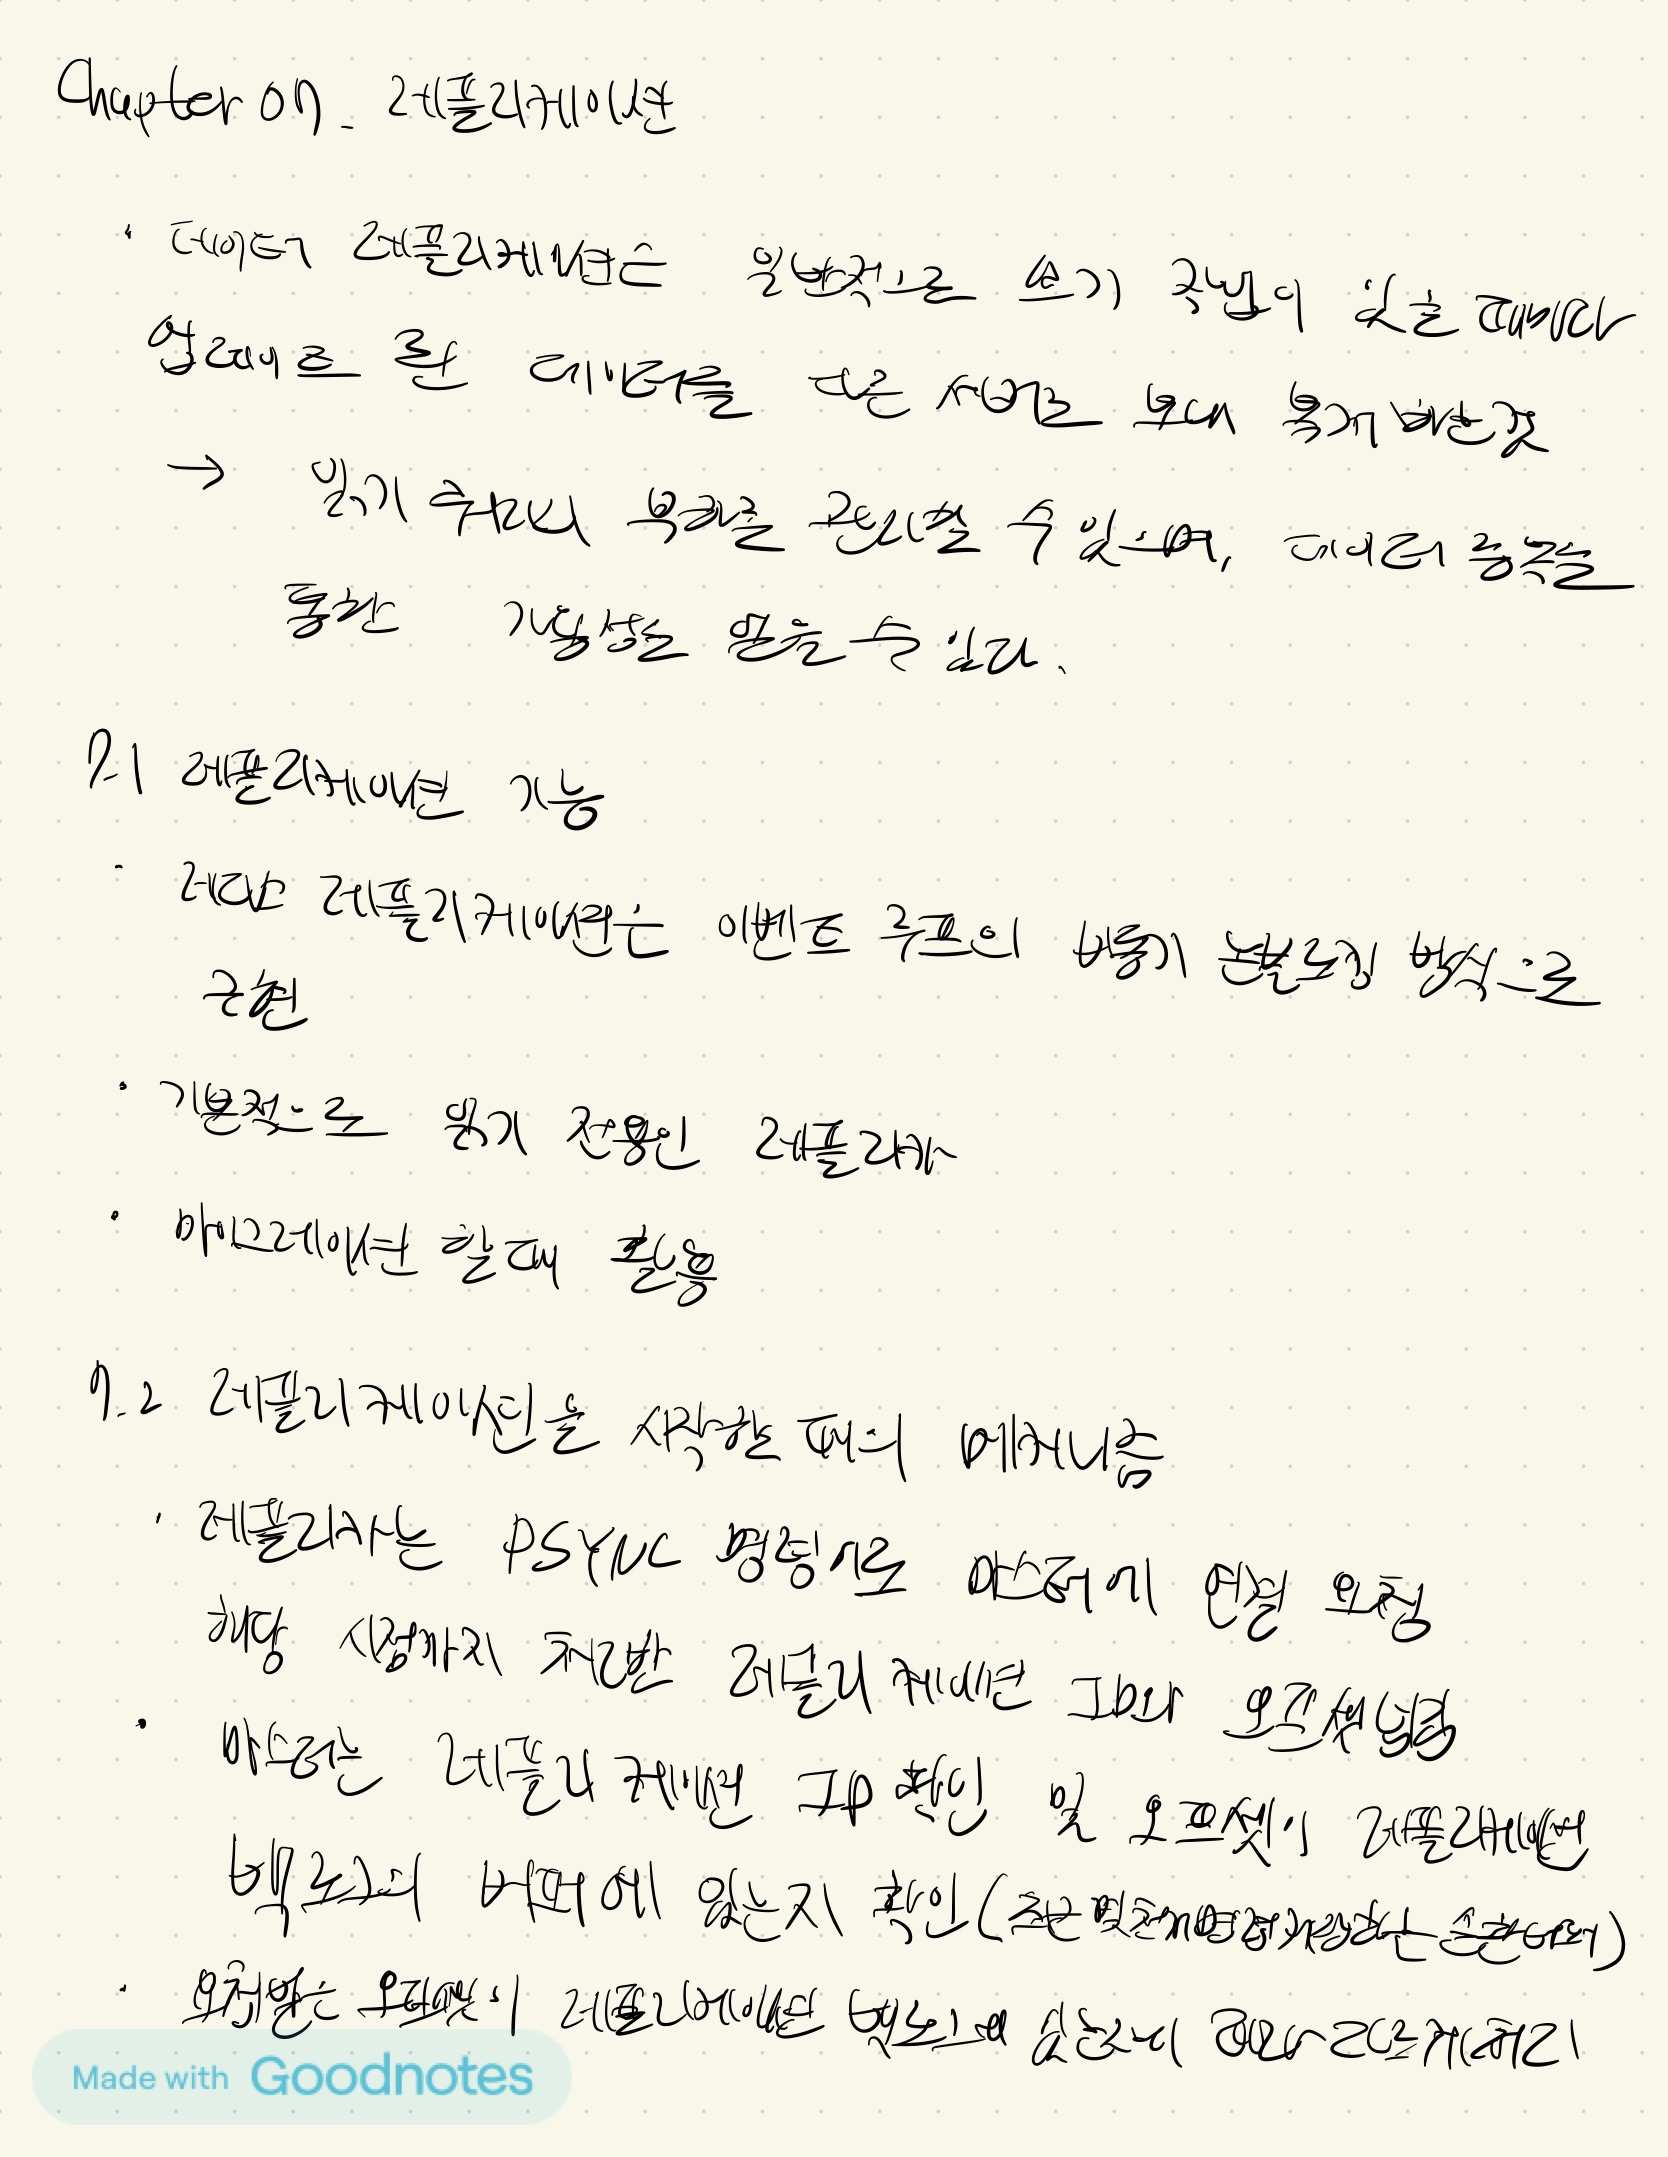 Chapter 07. 레플리케이션
· 데이터 레플리케이션은 일반적으로 쓰기 작업이 있을 때마다
업데이트 된 데이터를 다른 서버로 보내 복제하는 것
→ 읽기 쿼리 부하를 관리할 수 있으며, 데이터 중복을
통한 가용성도 얻을 수 있다.
7.1 레플리케이션 기능
· 레디스 레플리케이션은 이벤트 루프의 비동기 논블로킹 방식으로
구현
· 기본적으로 읽기 전용인 레플리카
· 마이그레이션 할 때 활용
7.2 레플리케이션을 시작할 때의 메커니즘
· 레플리카는 PSYNC 명령어로 마스터에 연결 요청
해당 시점까지 처리한 레플리케이션 ID와 오프셋 넘김
· 마스터는 레플리케이션 ID 확인 및 오프셋이 레플리케이션
백로그의 버퍼에 있는지 확인 (최근 명령 저장하는 순환 버퍼)
· 요청받은 오프셋이 레플리케이션 백로그에 있는지 따라 다르게 처리
Made with Goodnotes